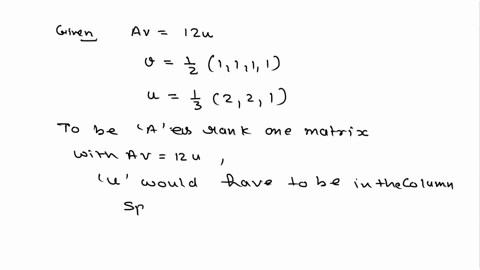 Given Av = 12u
v = 1/2 (1,1,1,1)
u = 1/3 (2,2,1)
To be 'A' as rank one matrix
with Av = 12u,
'u' would have to be in the column
Sp